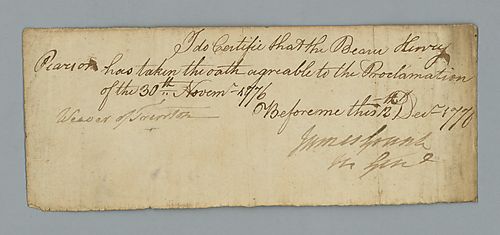 I do Certifie that the Bearer Henry
Pearson has taken the oath agreable to the Proclamation
of the 30th Novemr 1776
Weaver of Trenton
Before me this 12th Decr 1776
James Grant
M Genl